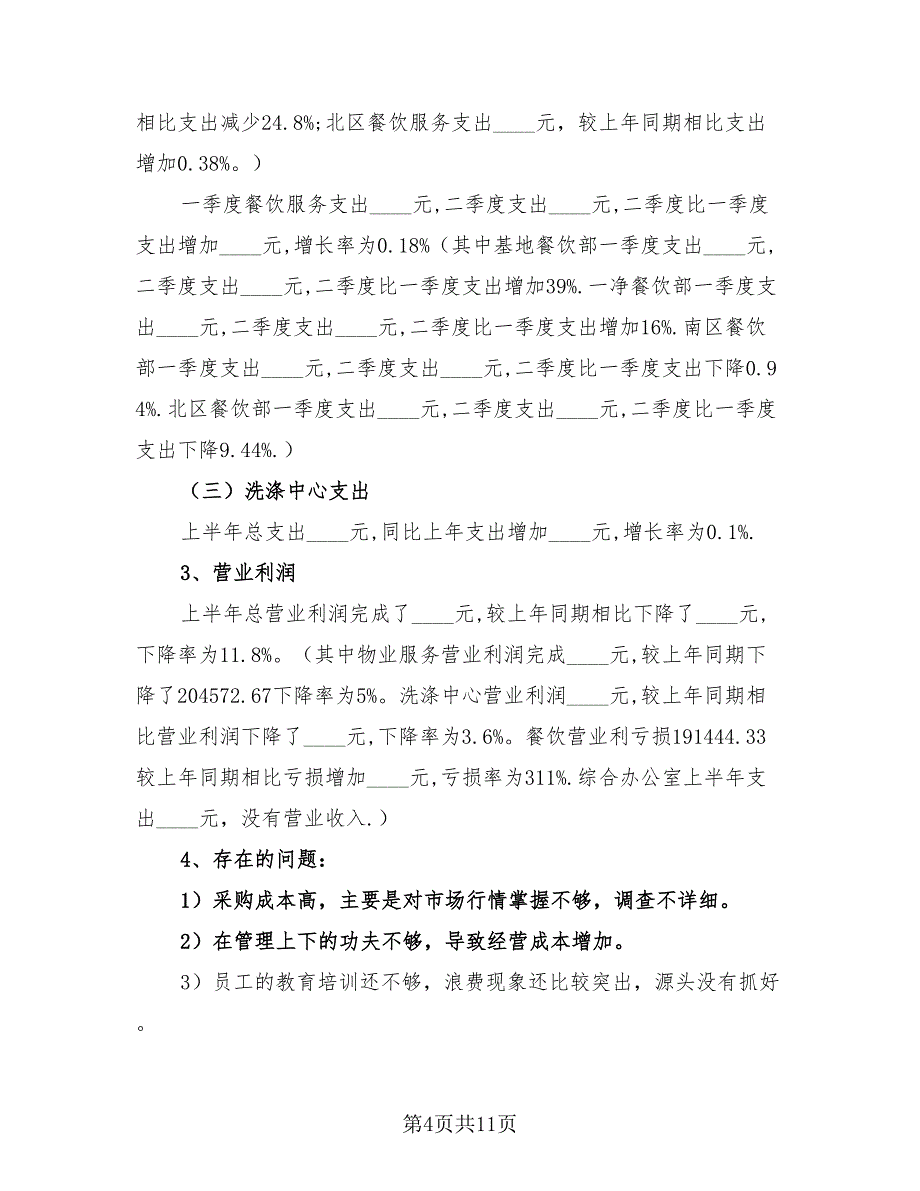 相比支出减少24.8%;北区餐饮服务支出____元，较上年同期相比支出
增加0.38%。）
一季度餐饮服务支出____元,二季度支出____元,二季度比一季度
支出增加____元,增长率为0.18%（其中基地餐饮部一季度支出____元,
二季度支出____元,二季度比一季度支出增加39%.一净餐饮部一季度支
出____元,二季度支出____元,二季度比一季度支出增加16%.南区餐饮
部一季度支出____元,二季度支出____元,二季度比一季度支出下降0.9
4%.北区餐饮部一季度支出____元,二季度支出____元,二季度比一季度
支出下降9.44%.）
（三）洗涤中心支出
上半年总支出____元,同比上年支出增加____元,增长率为0.1%.
3、营业利润
上半年总营业利润完成了____元,较上年同期相比下降了____元,
下降率为11.8%。（其中物业服务营业利润完成____元,较上年同期下
降了204572.67下降率为5%。洗涤中心营业利润____元,较上年同期相
比营业利润下降了____元,下降率为3.6%。餐饮营业利亏损191444.33
较上年同期相比亏损增加____元,亏损率为311%.综合办公室上半年支
出____元，没有营业收入.）
4、存在的问题：
1）采购成本高，主要是对市场行情掌握不够，调查不详细。
2）在管理上下的功夫不够，导致经营成本增加。
3）员工的教育培训还不够，浪费现象还比较突出，源头没有抓好
。
第4页共11页